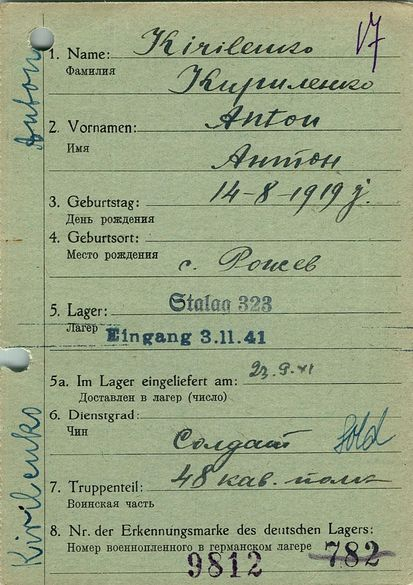 Kirilenko
1. Name:
Фамилия
V7
Кириленко
2. Vornamen: Anton
Имя
Антон
3. Geburtstag: 14-8-1919 г.
День рождения
4. Geburtsort:
Место рождения
с. Рожев
5. Lager: Stalag 323
Лагер Eingang 3.11.41
5a. Im Lager eingeliefert am: 23.9.41
Доставлен в лагер (число)
6. Dienstgrad:
Чин
Солдат Sold
7. Truppenteil: 48 кав. полк
Воинская часть
8. Nr. der Erkennungsmarke des deutschen Lagers:
Номер военнопленного в германском лагере 782
9812
Anton
Kirilenko